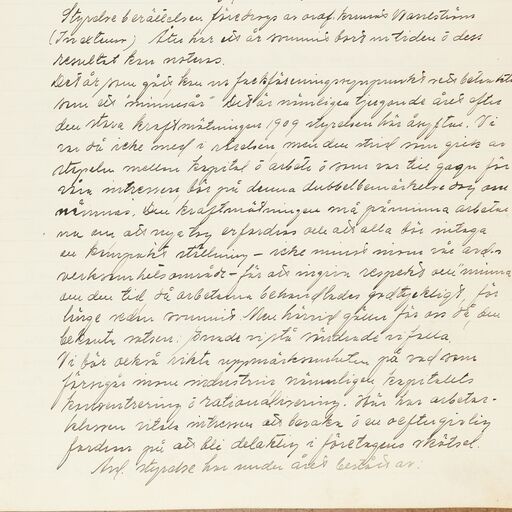 Styrelseberättelsen föredrogs av ordf. kamrat Wahlström
(In extenso) Åter har ett år svunnit bort i tiden o dess
resultat kan noteras.
Det år som gått kan ur fackföreningssynpunkt sett betecknas
som ett "minnesår" Det är nämligen tjugonde året efter
den stora kraftmätningen 1909 styrelsen här åsyftar. Vi
var då icke med i rörelsen men den strid som
mellan kapital o arbete o som var till gagn för
våra intressen, bör på denna dubbelbemärkelsedag om
nämnas. Den kraftmätningen må påminna arbetar
na om att nya tag erfordras om att alla bör intaga
en kompakt ställning – icke minst inom vårt
verksamhetsområde – för att ingiva respekt om minna
om den tid då arbetarna behandlades godtyckligt, för
länge sedan svunnit. Men härvid gäller för oss då, den
bekanta satsen: Enade vi stå söndrade vi falla.
Vi bör också rikta uppmärksamheten på vad som
försiggår inom industrin nämligen kapitalets
koncentrering o rationalisering. Här har arbetar-
klassen vitala intressen att bevaka o en oeftergivlig
fordran på att bli delaktig i företagens skötsel.
Avd. styrelse har under året bestått av: